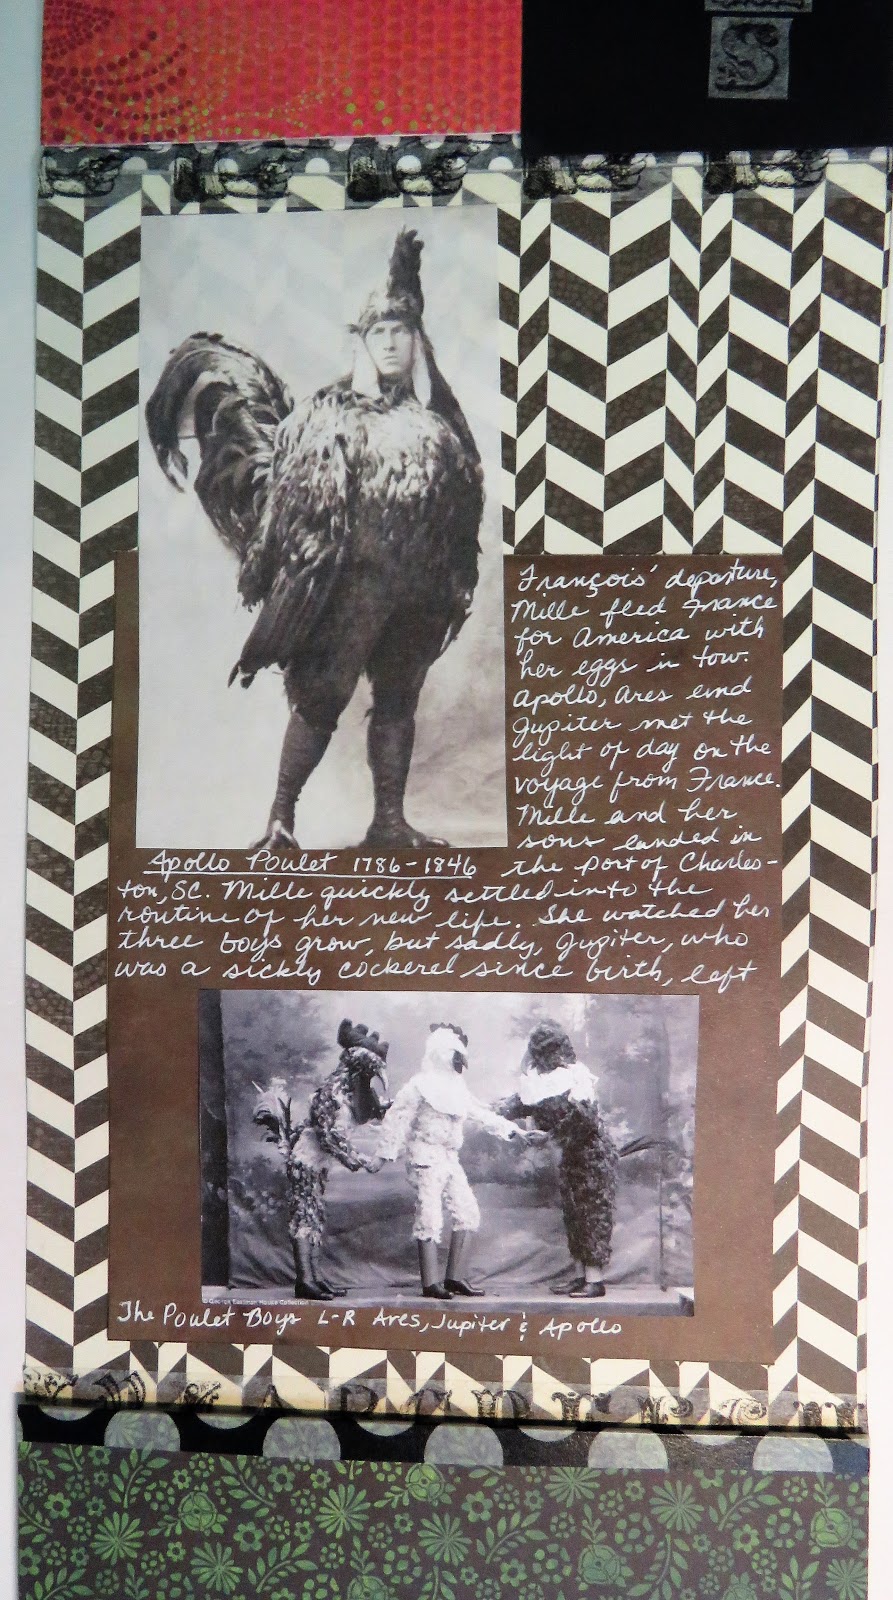 S
François' departure,
Mille fled France
for America with
her eggs in tow.
Apollo, Ares and
Jupiter met the
light of day on the
voyage from France.
Mille and her
sons landed in
Apollo Poulet 1786-1846 the port of Charles-
ton, SC. Mille quickly settled into the
routine of her new life. She watched her
three boys grow, but sadly, Jupiter, who
was a sickly cockerel since birth, left
© George Eastman House Collection
The Poulet Boys L-R Ares, Jupiter & Apollo